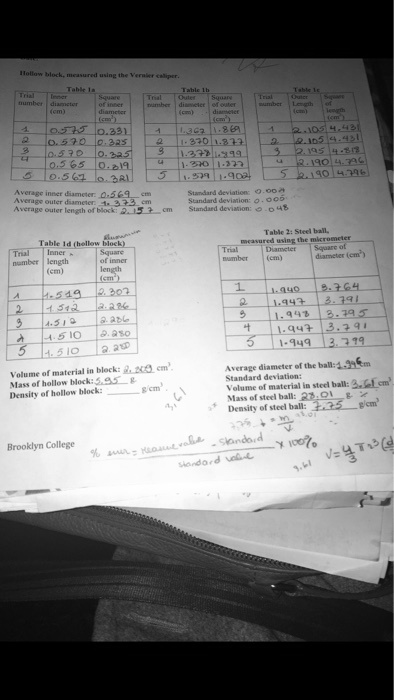 Hollow block, measured using the Vernier caliper.
Table 1a
Trial number
Inner diameter (cm)
Square of inner diameter (cm²)
1 0.575 0.331
2 0.570 0.325
3 0.570 0.325
4 0.565 0.319
5 0.567 0.321
Table 1b
Trial number
Outer diameter (cm)
Square of outer diameter (cm²)
1 1.367 1.869
2 1.370 1.877
3 1.378 1.899
4 1.370 1.877
5 1.379 1.902
Table 1c
Trial number
Outer Length (cm)
Square length (cm²)
1 2.105 4.431
2 2.105 4.431
3 2.195 4.818
4 2.190 4.796
5 2.190 4.796
Average inner diameter: 0.569 cm Standard deviation:
Average outer diameter: 1.373 cm Standard deviation: 0.005
Average outer length of block: 2.157 cm Standard deviation: 0.048
Table 1d (hollow block)
Trial number
Inner length (cm)
Square of inner length (cm²)
1 1.519 2.307
2 1.512 2.286
3 1.512 2.286
4 1.510 2.280
5 1.510 2.280
Table 2: Steel ball,
measured using the micrometer
Trial number
Diameter (cm)
Square of diameter (cm²)
1 1.940 3.764
2 1.947 3.791
3 1.948 3.795
4 1.947 3.791
5 1.949 3.799
Volume of material in block: cm³
Mass of hollow block: 5.95 g
Density of hollow block: g/cm³
Average diameter of the ball: 1.946 cm
Standard deviation:
Volume of material in steel ball: 3.61 cm³
Mass of steel ball: 28.01 g
Density of steel ball: 7.75 g/cm³
Brooklyn College
% error = measure value - standard / standard value x 100%
3.61